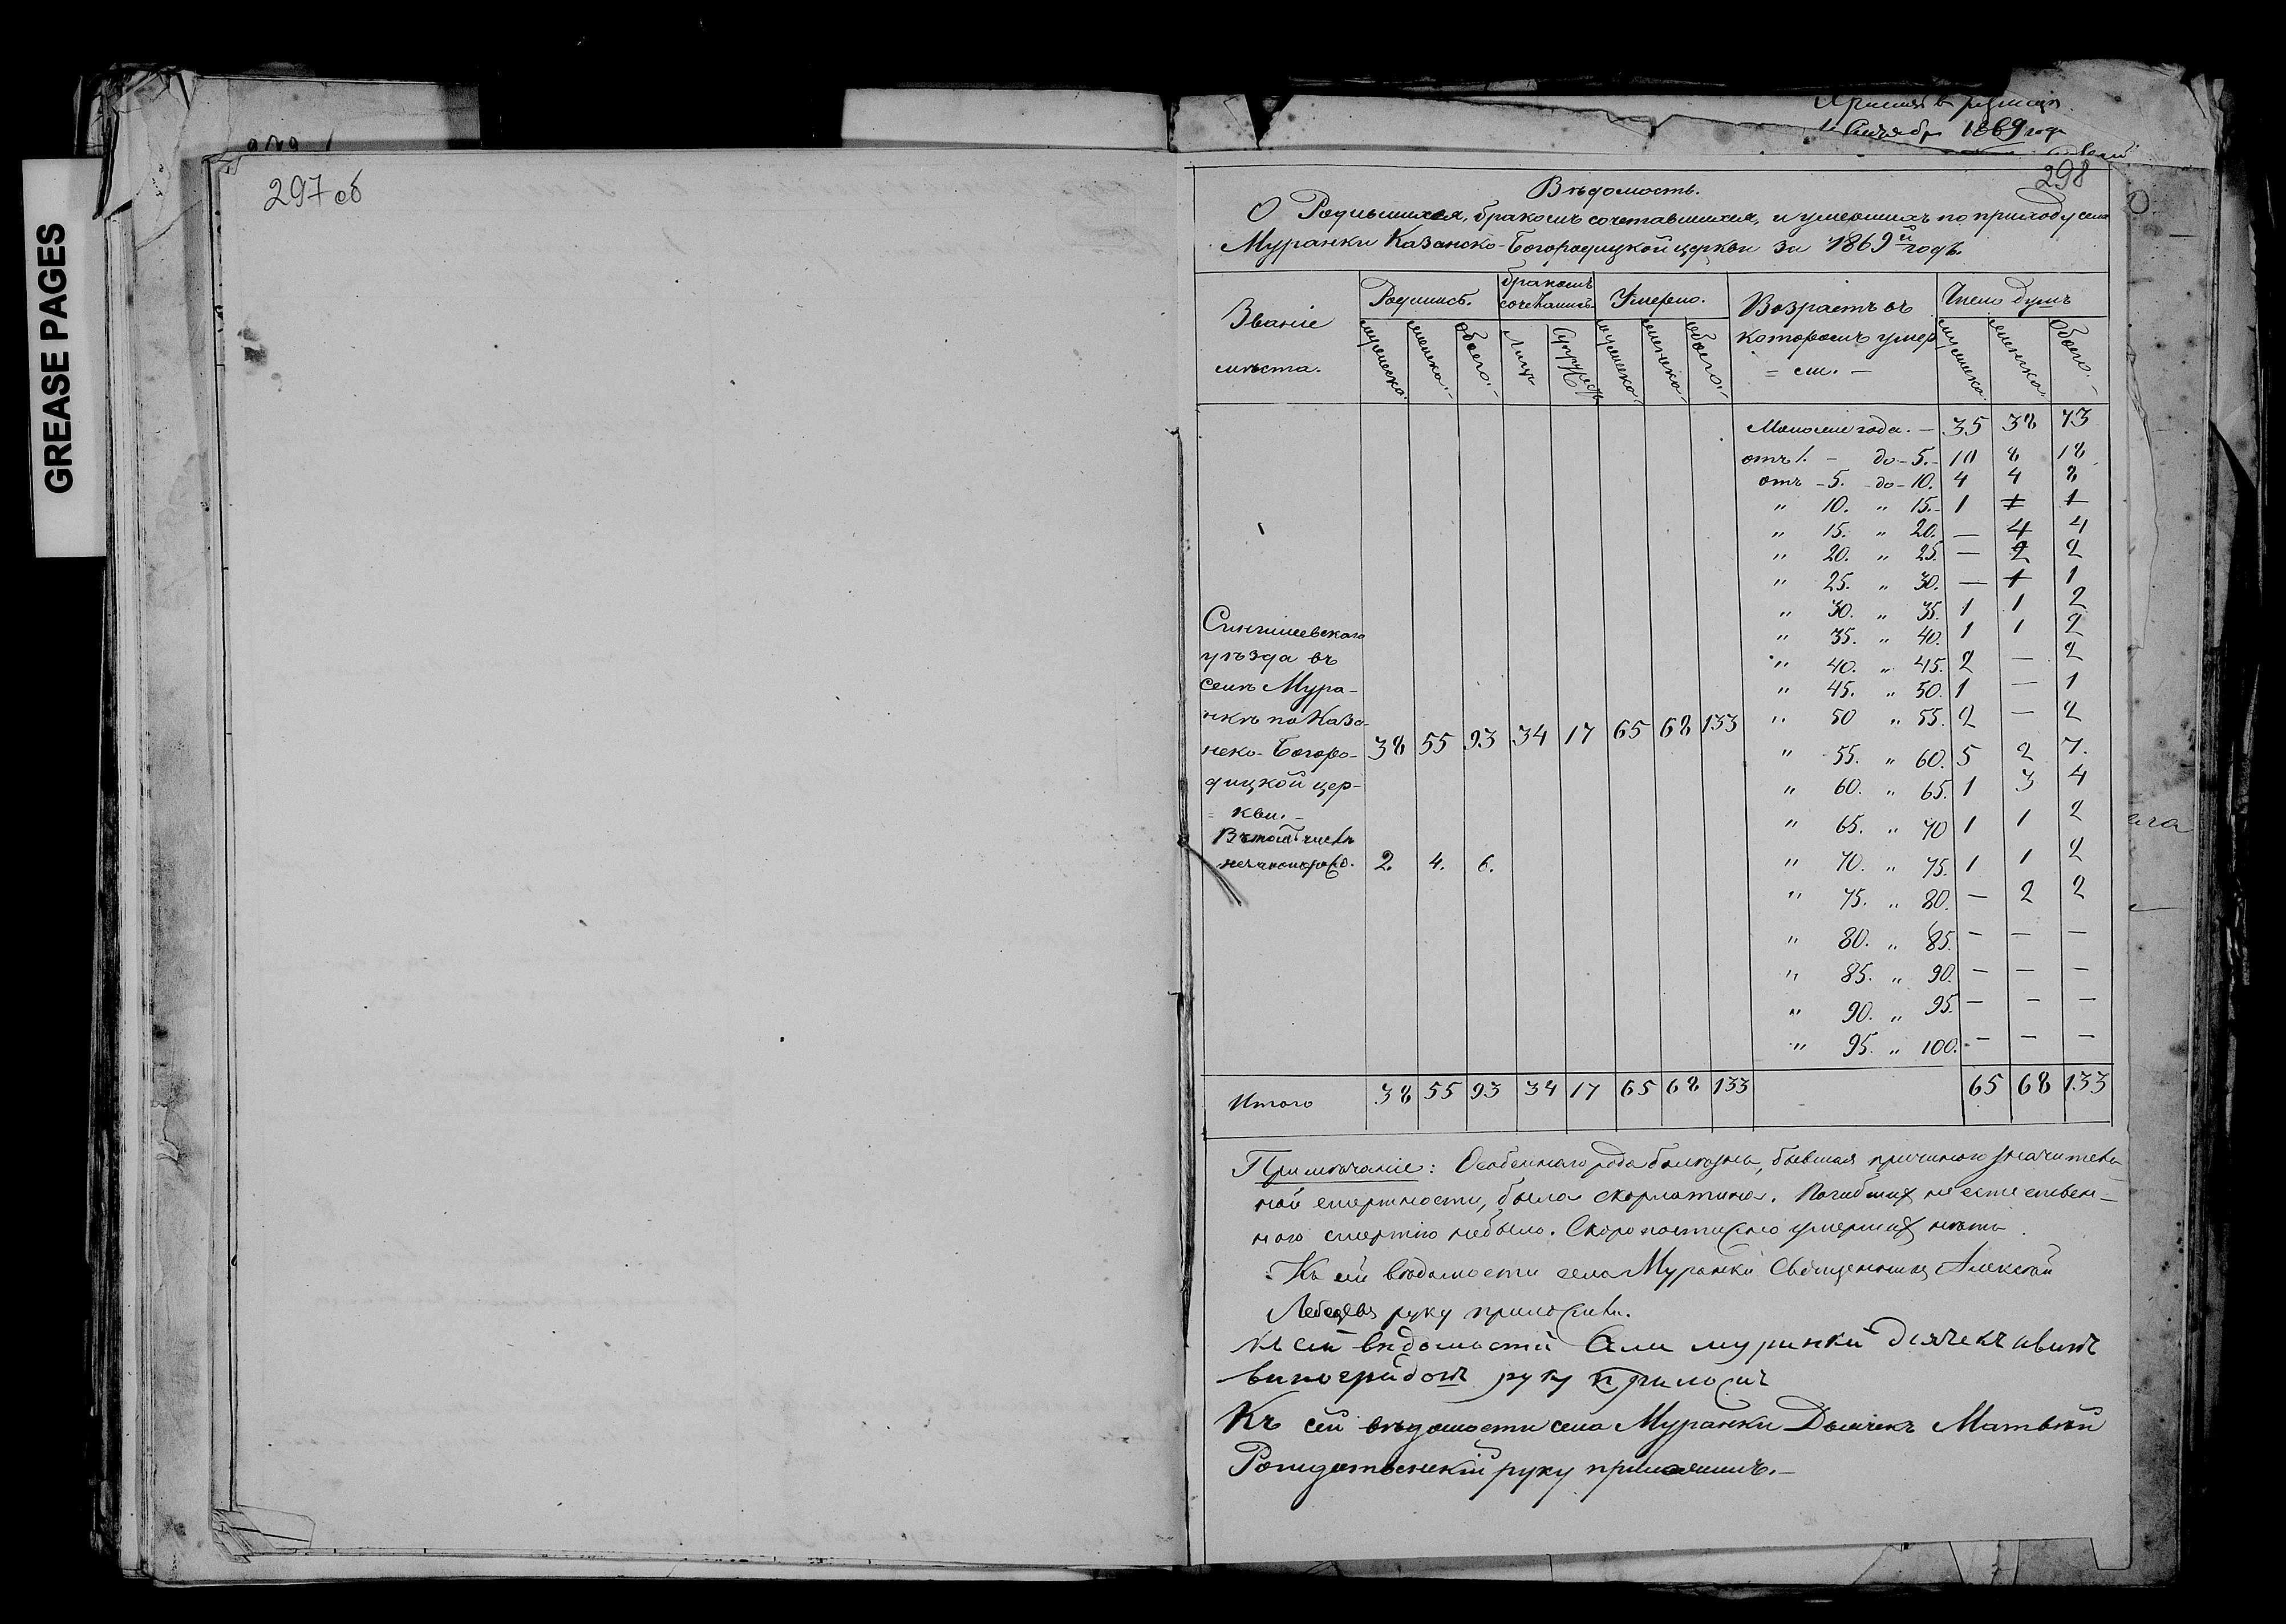 GREASE PAGES
297 об
1869 года
298
Вѣдомость.
О Родившихся, бракомъ сочетавшихся, и умершихъ по приходу села
Муранки Казанско-Богородицкой церкви за 1869й годъ.
Званіе
мѣста.
Родились.
бракомъ
сочетались.
Умерло.
Возрастъ въ
которомъ умер
= ли. —
Число душъ
мужеска.
женска.
обоего.
Лицъ
Супружествъ
мужеска.
женска.
обоего.
мужеска.
женска.
обоего.
Моложе года. — 35 38 73
отъ 1. - до - 5. - 10 8 18
отъ - 5. - до - 10. 4 4 8
" 10. " 15. - 1 — 1
" 15. " 20. — 4 4
" 20. " 25. — 2 2
" 25. " 30. — 1 1
" 30. " 35. 1 1 2
" 35. " 40. 1 1 2
" 40. " 45. 2 — 2
" 45. " 50. 1 — 1
" 50 " 55. 2 — 2
" 55. " 60. 5 2 7.
" 60. " 65. 1 3 4
" 65. " 70 1 1 2
" 70. " 75. 1 1 2
" 75. " 80. — 2 2
" 80. " 85. — — —
" 85. " 90. — — —
" 90. " 95. — — —
" 95. " 100. — — —
Сингилеевскаго
уѣзда въ
селѣ Мура-
нкѣ по Каза-
нско-Богоро-
дицкой цер-
= кви. -
38 55 93 34 17 65 68 133
Въ томъ числѣ
незаконорож. 2. 4. 6.
Итого 38 55 93 34 17 65 68 133 65 68 133
Примѣчаніе: Особеннаго рода болѣзнь, бывшая причиною значитель-
ной смертности, была скорлатина. Погибшихъ неестествен-
ною смертію небыло. Скоропостижно умершихъ нѣтъ.
Къ сей вѣдомости села Муранки Священникъ Алексѣй
Лебедевъ руку приложилъ.
Къ сей вѣдомости Села муранки дьячекъ иванъ
виноградовъ руку приложилъ
Къ сей вѣдомости села Муранки Дьячекъ Матвѣй
Рождественскій руку приложилъ. —